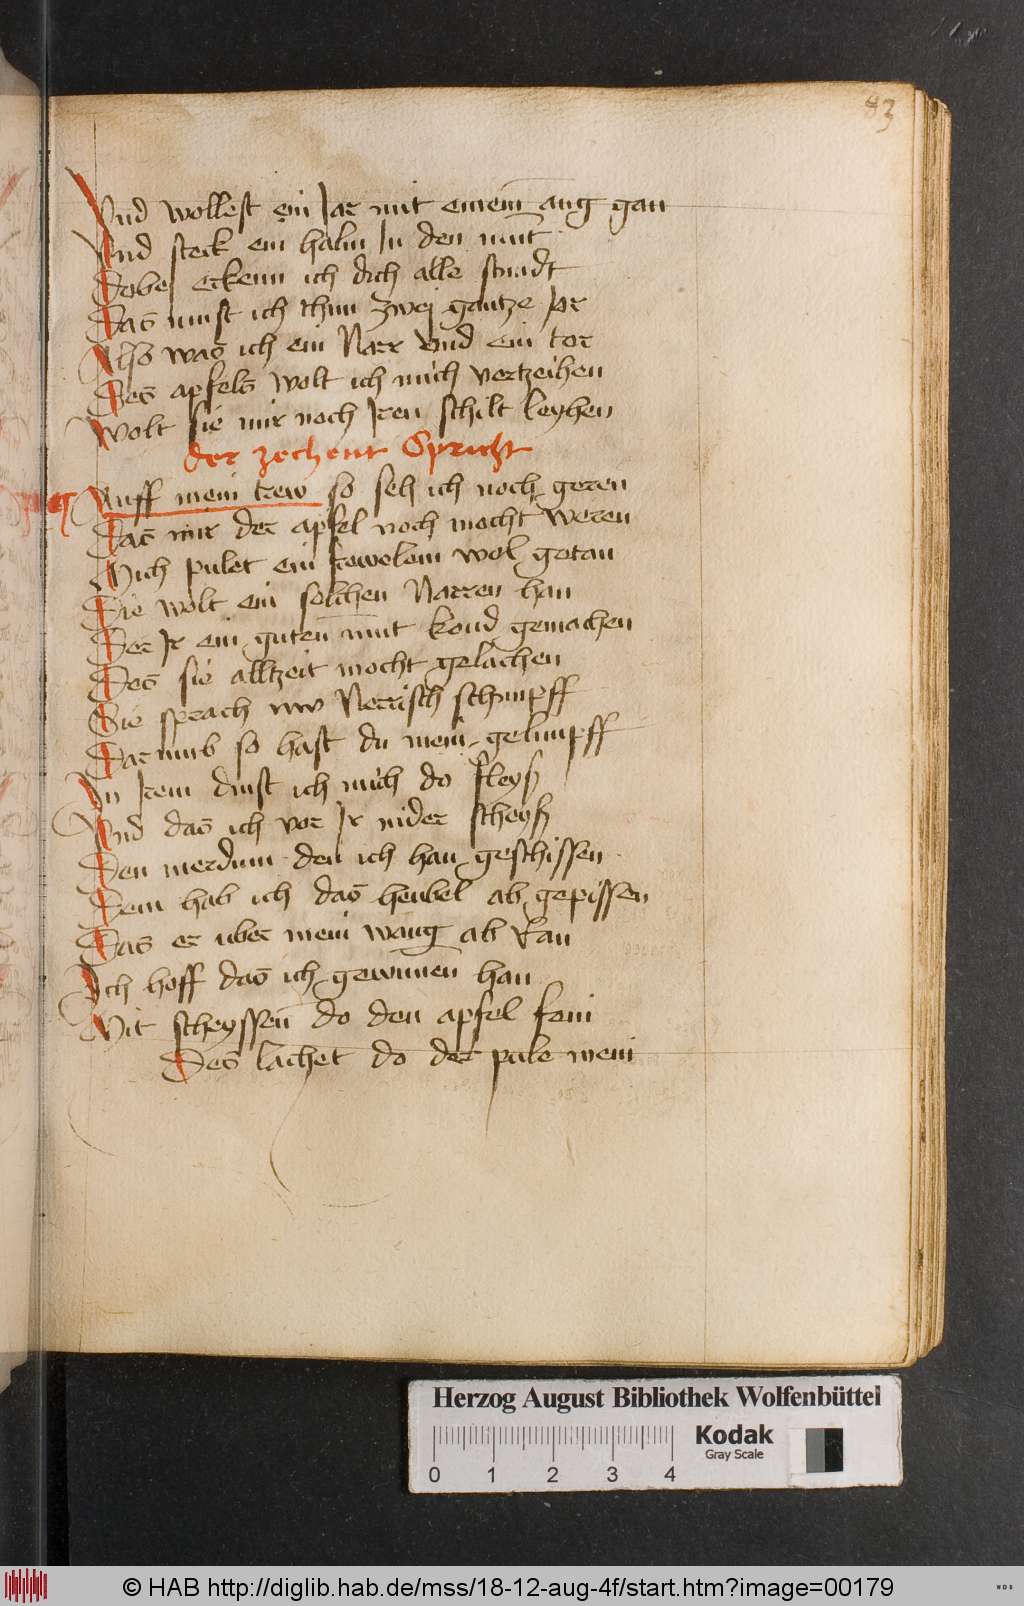 83
Vnd wollest ein Jar mit einem aug gan
Vnd steck ein halm Jn den mut
Dobej erkenn ich dich alle stundt
Das must ich thun zwej gantze Jor
Also was ich ein Narr vnd ein tor
Des apfels wolt ich mich vertzeihen
Wolt sie mir noch Jren schilt leyhen
der zechent Spricht
Auff mein trew so seh ich noch geren
Das mir der apfel noch mocht weren
Mich pulet ein frewelein wol getan
Die wolt ein solchen Narren han
Der Jr ein guten mut kond gemachen
Des sie alltzeit mocht gelachen
Sie sprach nw Nerrisch schimpff
Darumb so hast du mein gelimpff
Jn Jrem dinst ich mich do fleyß
Vnd das ich vor Jr nider scheyß
Den merdum den ich han geschissen
Dem hab ich das heubel ab gepissen
Das er uber mein wang ab ran
Jch hoff das ich gewinnen han
Mit scheyssen do den apfel fein
Des lachet do der pule mein
Herzog August Bibliothek Wolfenbüttel
0 1 2 3 4
Kodak
Gray Scale
© HAB http://diglib.hab.de/mss/18-12-aug-4f/start.htm?image=00179